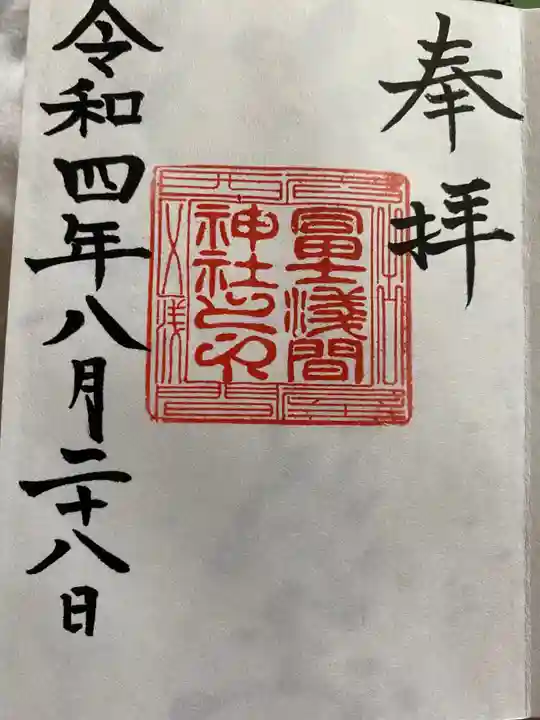 奉拝
冨士浅間
神社之印
令和四年八月二十八日